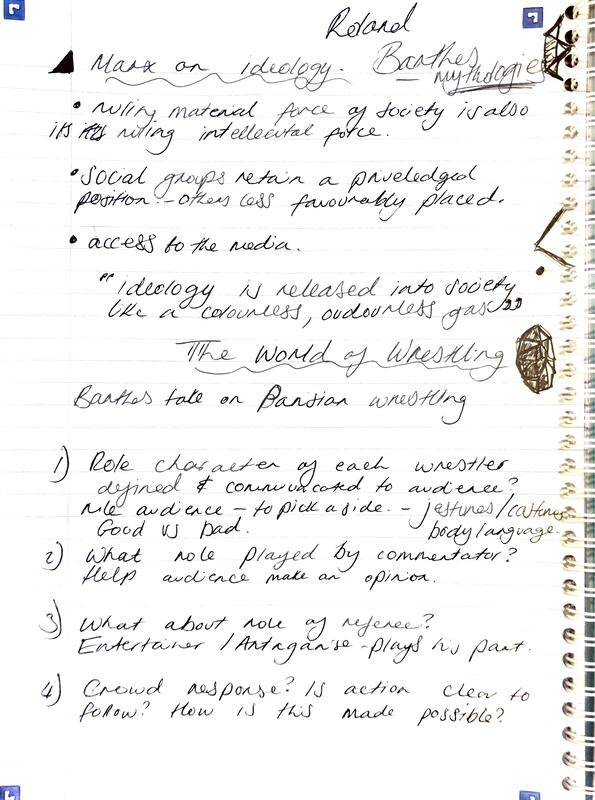 Roland
Marx on ideology. Barthes
mythologies
• ruling material force of society is also
its ruling intellecutal force.
• Social groups retain a priveledged
position - others less favourably placed.
• access to the media.
"ideology is released into society
like a colourless, oudourless gas"
The World of Wrestling
Barthes take on Parisian wrestling
1) Role character of each wrestler
defined & communicated to audience?
role audience - to pick a side. - jestures/costumes
Good vs bad. body language.
2) What role played by commentator?
Help audience make an opinion.
3) What about role of referee?
Entertainer / Antaganise - plays his part.
4) Crowd response? Is action clear to
follow? How is this made possible?